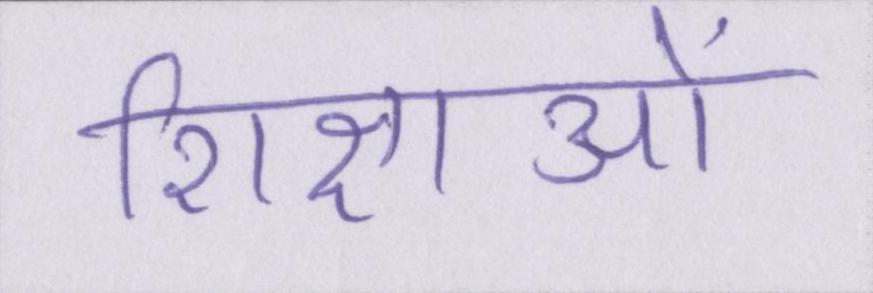 शिक्षाओं